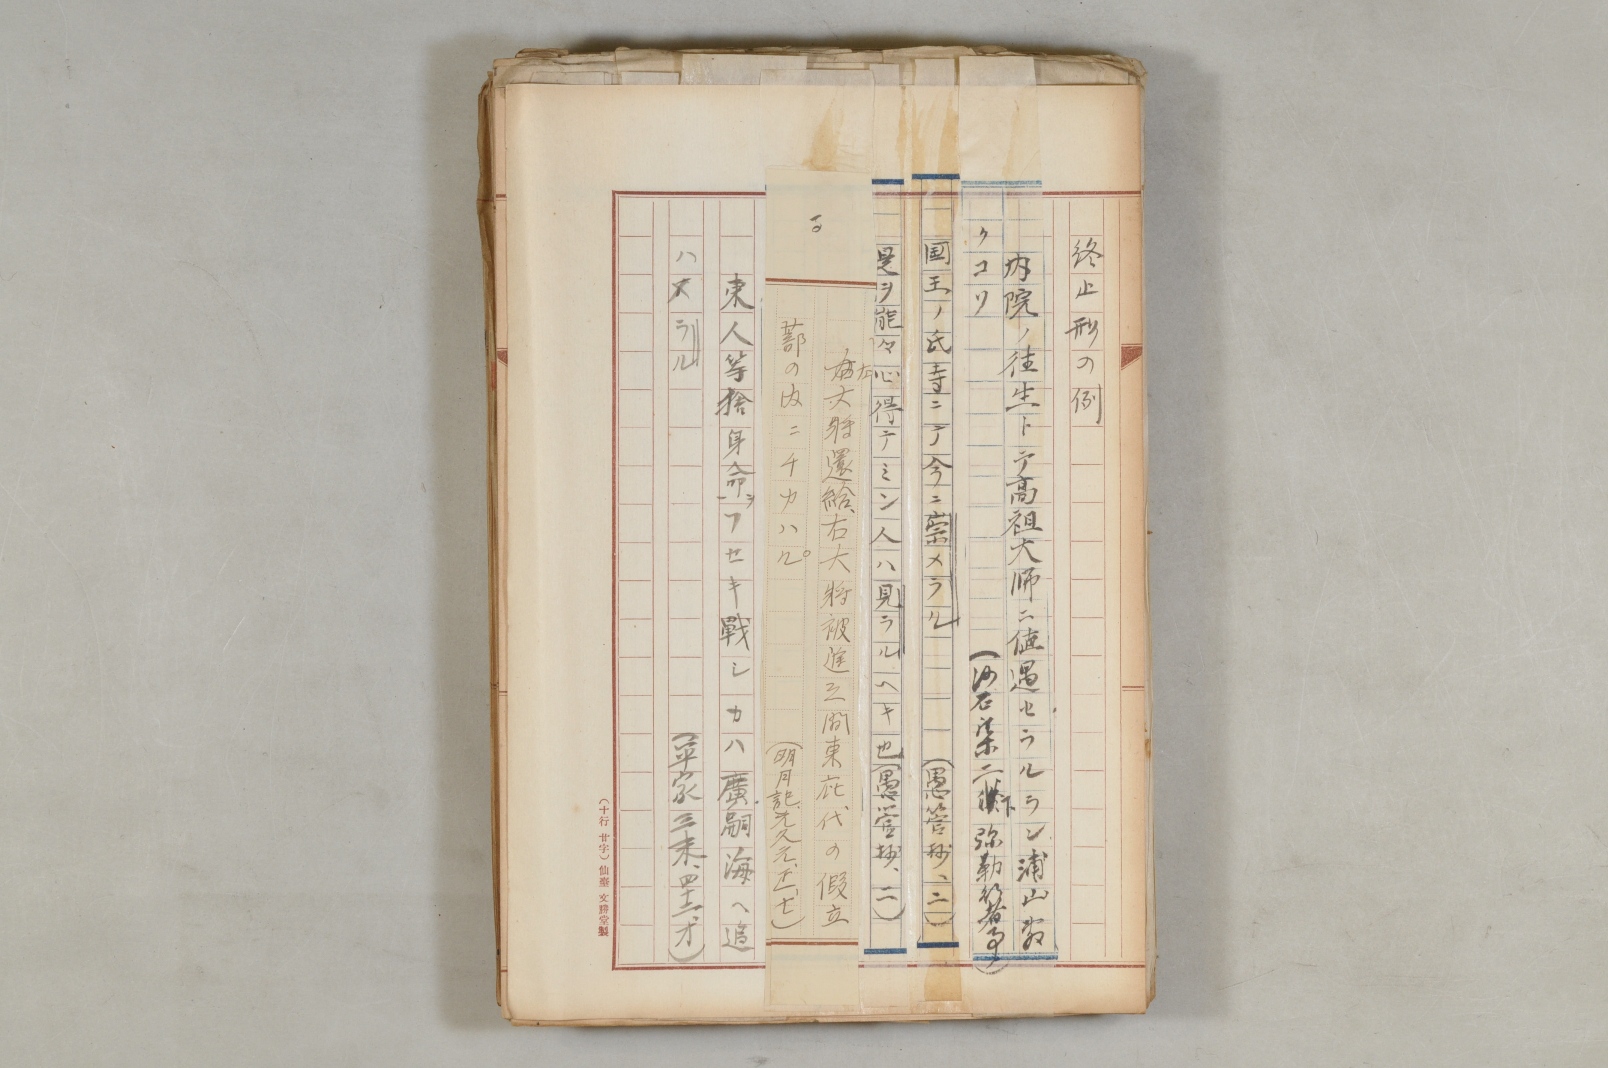 終止形の例
内院ノ往生トテ高祖大師ニ値遇セラルラン浦山敷
クコソ
(沙石集二下 弥勒行者事)
国王ノ氏寺ニテ今ニ崇メラル
(愚管抄、二)
是ヲ能々心得テミン人ハ見ラルヘキ也(愚管抄、二)
る
左大将還給、右大将被進之間東庇代の假立
蔀の内ニチカハル。
(明月記、元久元、正、七)
東人等捨身命ヲフセキ戰シカハ廣嗣海ヘ追
ハヌラル
(平家三末、四十二オ)
(十行 廿字)仙臺 文勝堂製